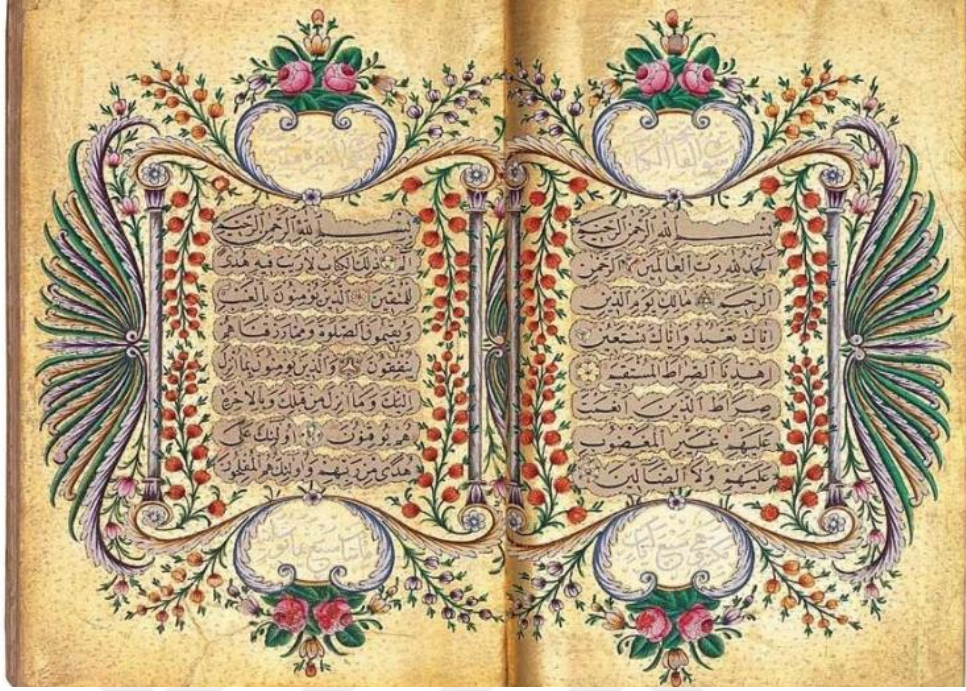 بسم الله الرحمن الرحيم
الحمد لله رب العالمين الرحمن
الرحيم مالك يوم الدين
اياك نعبد واياك نستعين
اهدنا الصراط المستقيم
صراط الذين انعمت
عليهم غير المغضوب
عليهم ولا الضالين
بسم الله الرحمن الرحيم
الم ذلك الكتاب لا ريب فيه هدى
للمتقين الذين يؤمنون بالغيب
ويقيمون الصلوة ومما رزقناهم
ينفقون والذين يؤمنون بما انزل
اليك وما انزل من قبلك وبالاخرة
هم يوقنون اولئك على
هدى من ربهم واولئك هم المفلحون